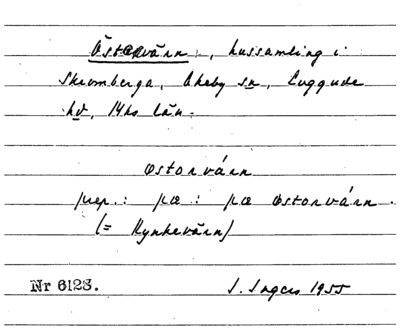 Östervärn, hussamling i
Skromberga, Ekeby sn, Luggude
hd, Mhs län.
östorvárn
prep.: pæ: pæ östorvárn.
(= Kynkevärn)
Nr 6123. I. Ingers 1955